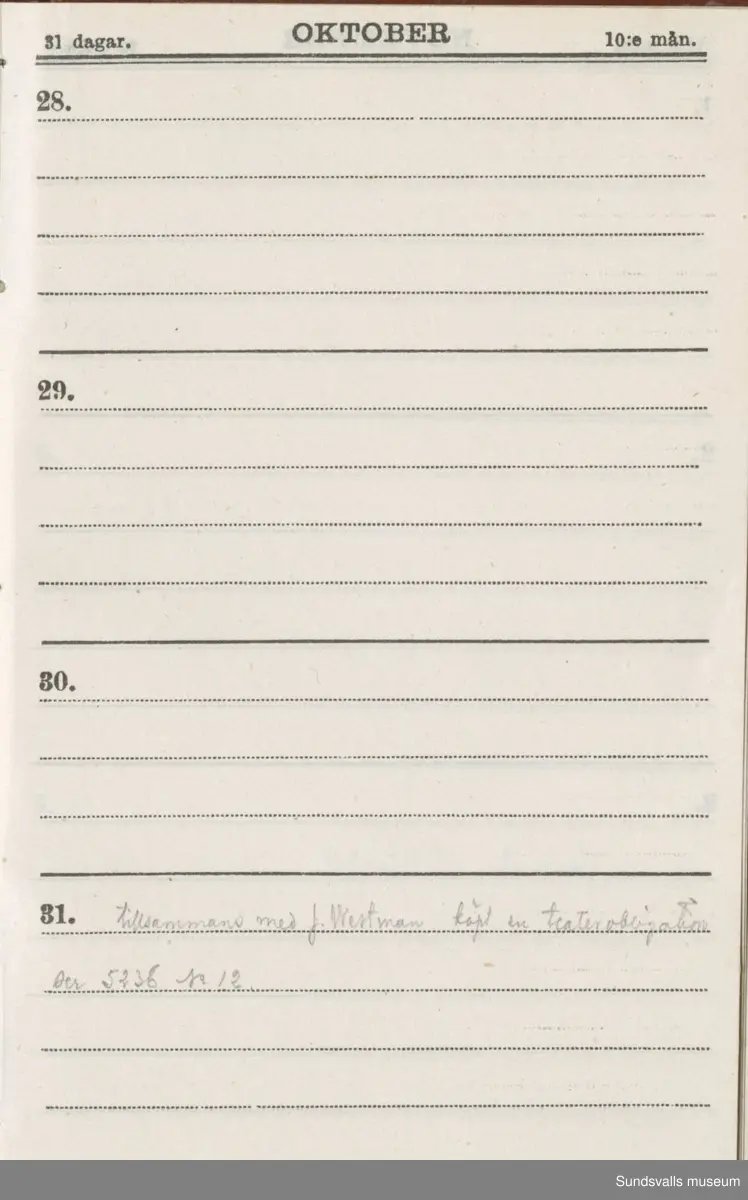 31 dagar. OKTOBER 10:e mån.
28.
29.
30.
31. tillsammans med J. Westman köpt en teaterobligation
Ser 5236 No 12.
Sundsvalls museum